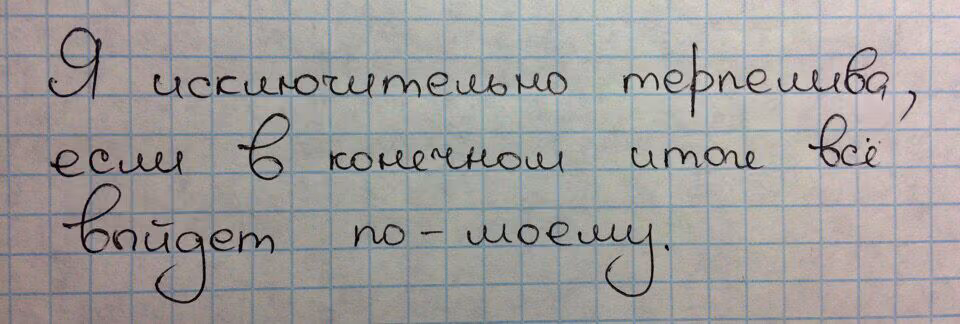 Я исключительно терпелива,
если в конечном итоге всё
выйдет по-моему.